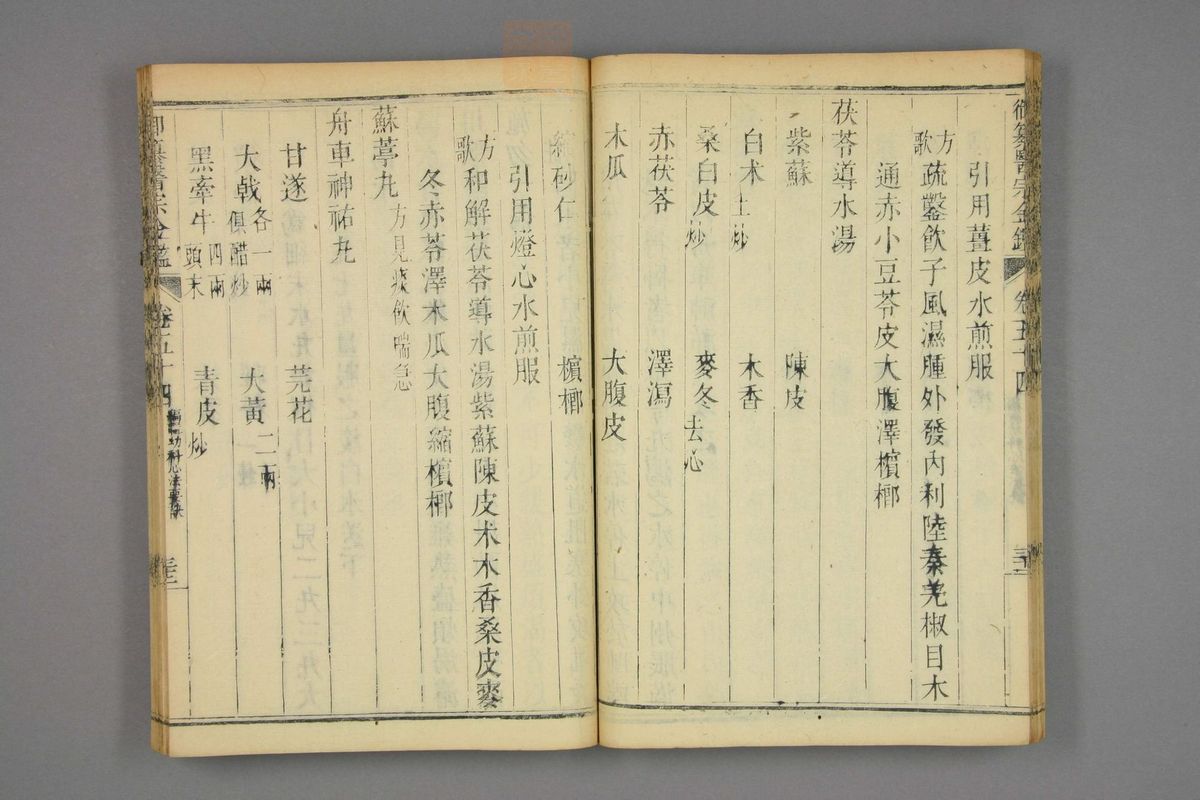 御纂醫宗金鑑 卷五十四
引用薑皮水煎服
方歌 疏鑿飲子風濕腫外發內利陸秦羌椒目木
通赤小豆苓皮大腹澤檳榔
茯苓導水湯
紫蘇 陳皮
白术土炒 木香
桑白皮炒 麥冬去心
赤茯苓 澤瀉
木瓜 大腹皮
縮砂仁 檳榔
引用燈心水煎服
方歌 和解茯苓導水湯紫蘇陳皮术木香桑皮麥
冬赤苓澤木瓜大腹縮檳榔
蘇葶丸 方見痰飲喘急
舟車神祐丸
甘遂 芫花
大戟各一兩俱醋炒 大黃二兩
黑牽牛四兩頭末 青皮炒
御纂醫宗金鑑 卷五十四 幼科心法要訣